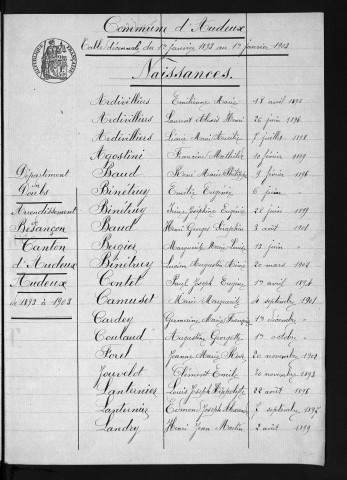 Commune d'Audeux
Table décennale du 1er Janvier 1893 au 1er janvier 1903
Naissances.
Ardivilliers Emilienne Marie 18 avril 1895
Ardivilliers Laurent Henri 26 juin 1896
Ardivilliers Marie 7 juillet 1898
Agostini Francine Mathilde 10 février 1899
Département du Doubs
Arrondissement Besançon
Canton d'Audeux
Audeux
de 1893 à 1903
Baud René Marie Philippe 9 février 1896
Bénétruy Emilie Eugénie 6 juin
Bénétruy Joséphine Eugénie 28 juin 1899
Baud Henri Georges 3 août 1901
Bergier Marguerite Marie Louise 13 juin "
Bénétruy Augustin 20 mars 1902
Contet Paul Joseph Eugène 1er avril 1894
Camuset Marie Marguerite 4 septembre 1901
Cardey Germaine Marie Françoise 1er décembre "
Coulaud Augustine Georgette 1er octobre "
Jeanne Marie Rose 20 novembre 1902
Jouvelot Clément Emile 30 novembre 1893
Lanternier Louis Joseph Hippolyte 22 août 1896
Lanternier Edmond Joseph 7 septembre 1897
Landry Henri Jean Martin 2 août 1899